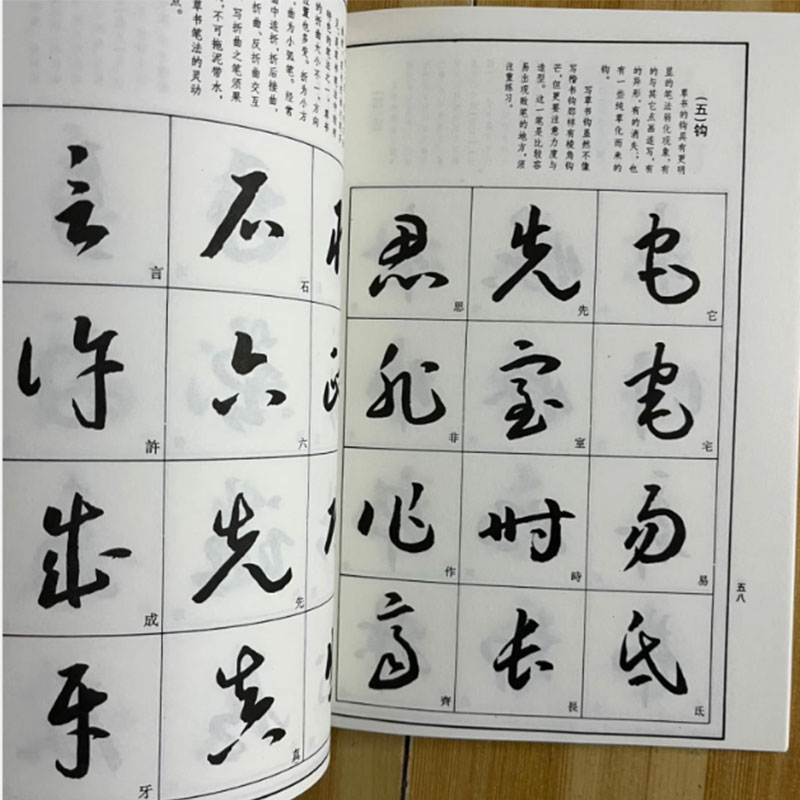 (五)钩
草书的钩具有更明
显的笔法弱化现象，有
的与其它点画连写，有
的异形，有的消失；也
有一些纯草化而来的
钩。
写草书钩虽然不像
写楷书钩那样有棱角钩
芒，但更要注意力度与
造型。这一笔是比较容
易出现败笔的地方，须
注重练习。
它
宅
易
氐
先
室
時
長
思
非
作
齊
五八
特色的笔法之一。草书
的折曲大小不一，方向
位置也多变。折为小方
曲为小弧笔。经常
中连折、折后接曲，
折曲、反折曲交互
写折曲之笔须果
不可拖泥带水，
草书笔法的灵动
点。
石
六
先
真
言
許
成
牙